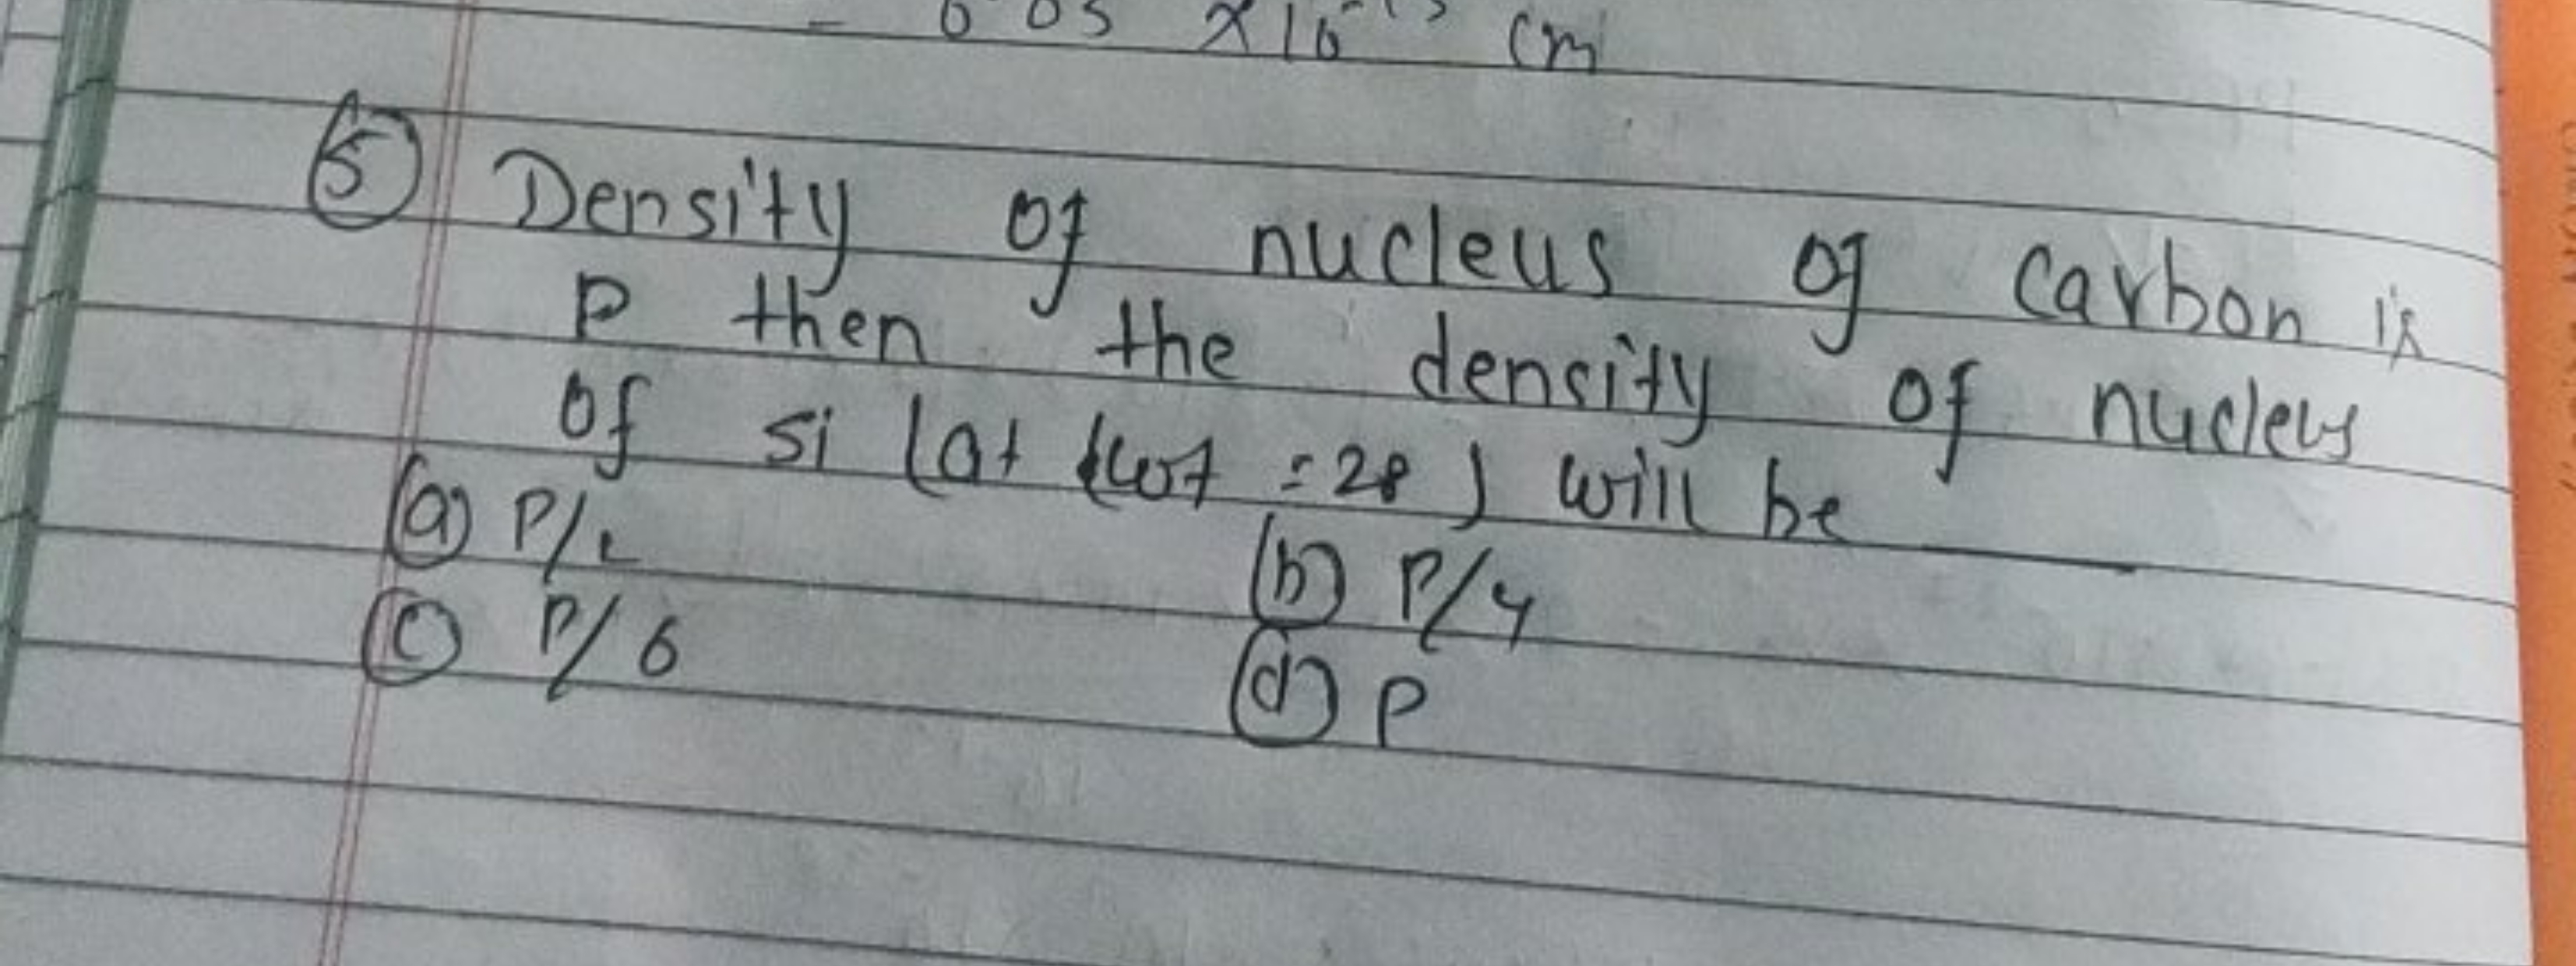 = 6.05 x10⁻¹³ cm
(5) Density of nucleus of carbon is
P then the density of nucleus
of si (at wt = 28) will be ____
(a) P/2 (b) P/4
(c) P/6 (d) P